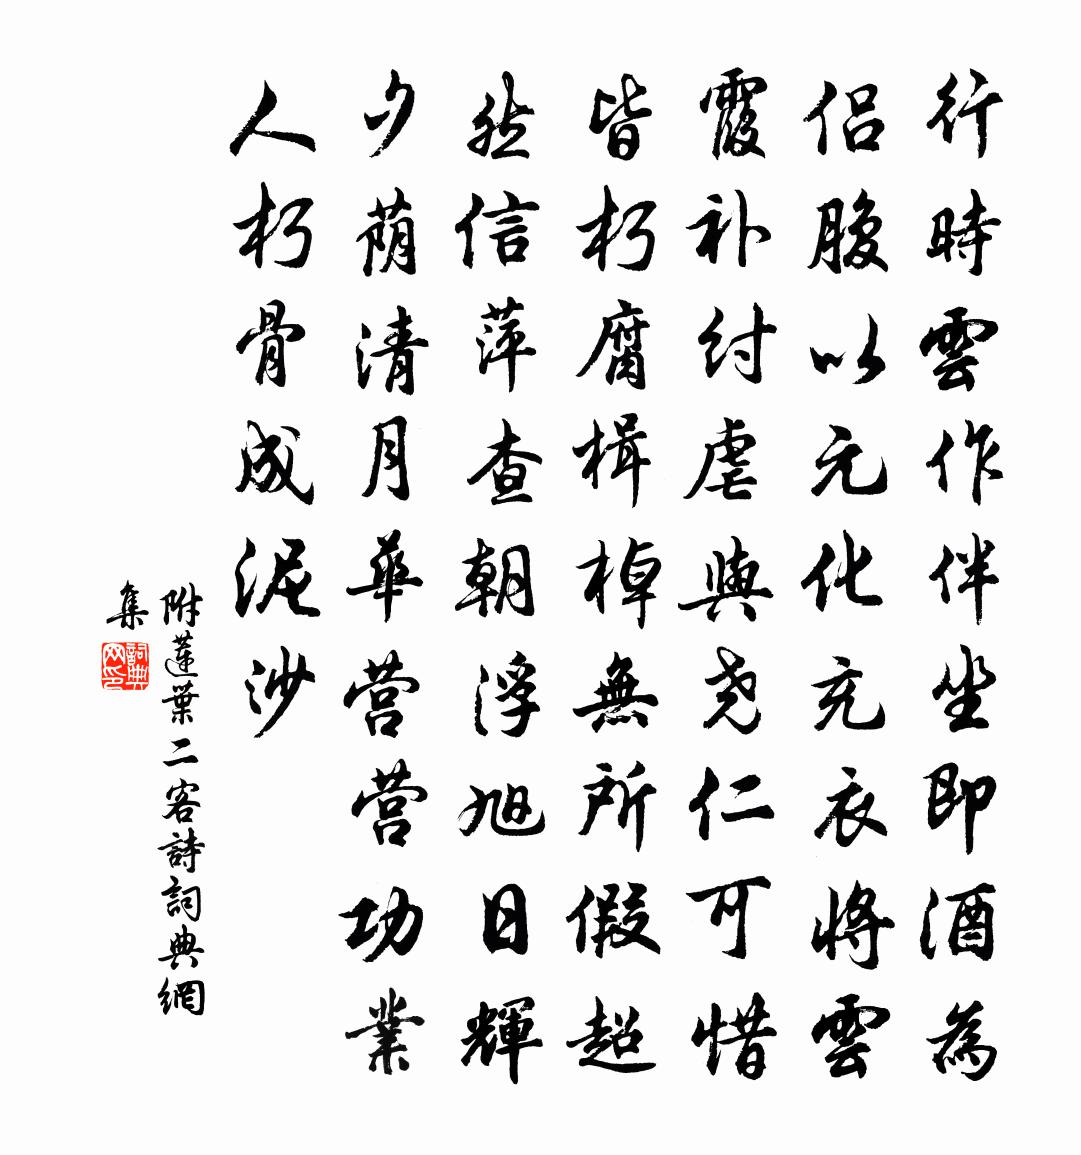 行時雲作伴坐即酒為
侶腹以元化充衣將雲
霞补纣虐與尧仁可惜
皆朽腐楫棹無所假超
然信萍查朝浮旭日輝
夕荫清月華营营功業
人朽骨成泥沙
附蓮葉二客詩詞典網
集
詞典
网印